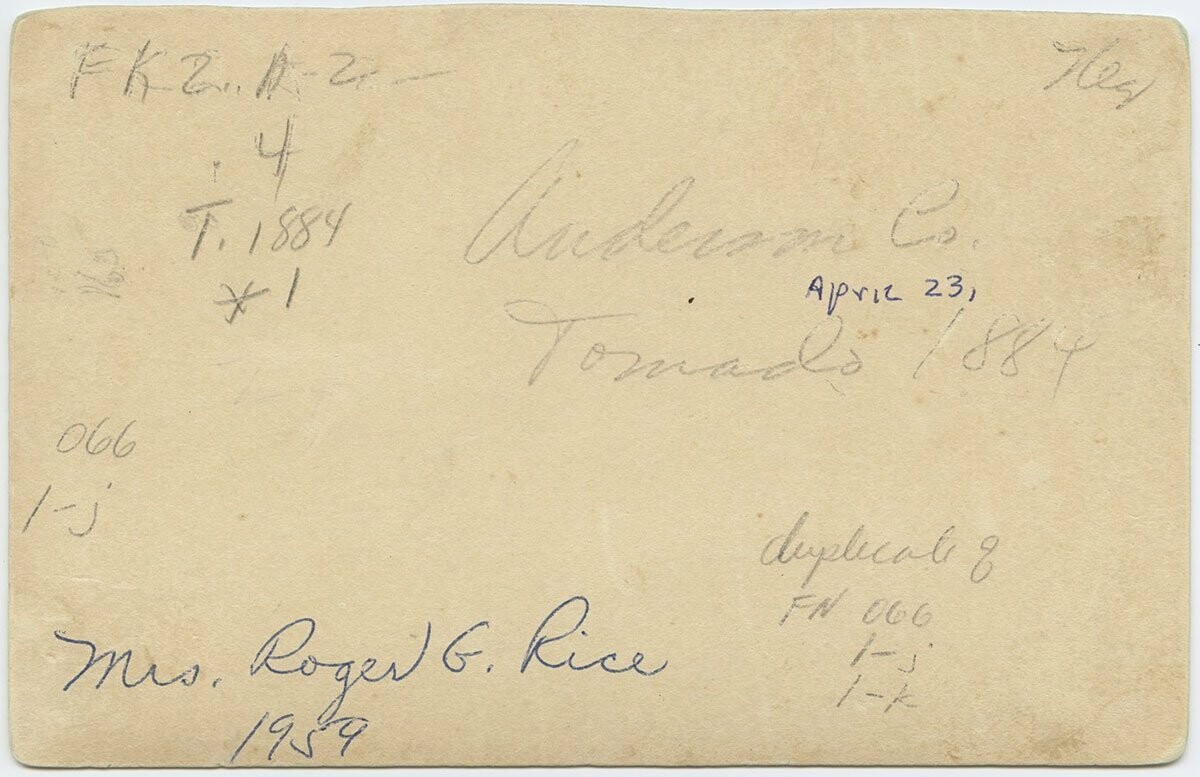 FK2. A-2
Neg
.4
T. 1884
*1
Anderson Co.
April 23,
Tornado 1884
066
1-j
duplicate of
FN 066
1-j
1-k
Mrs. Roger G. Rice
1959